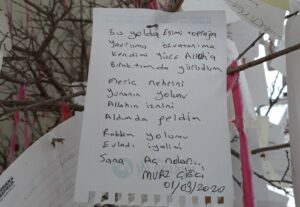 Bu yolda Eşimi toprağa
Yavrumu okyanusuma
Kendimi Yüce Allah'a
Bıraktımda yürüdüm
Meriç nehrini
Yunanın yolunu
Allahın iznini
Aldımda geldim
Rabbim yolumu
Evladı iyalimi
Sana
MURAZ
01/03/2020